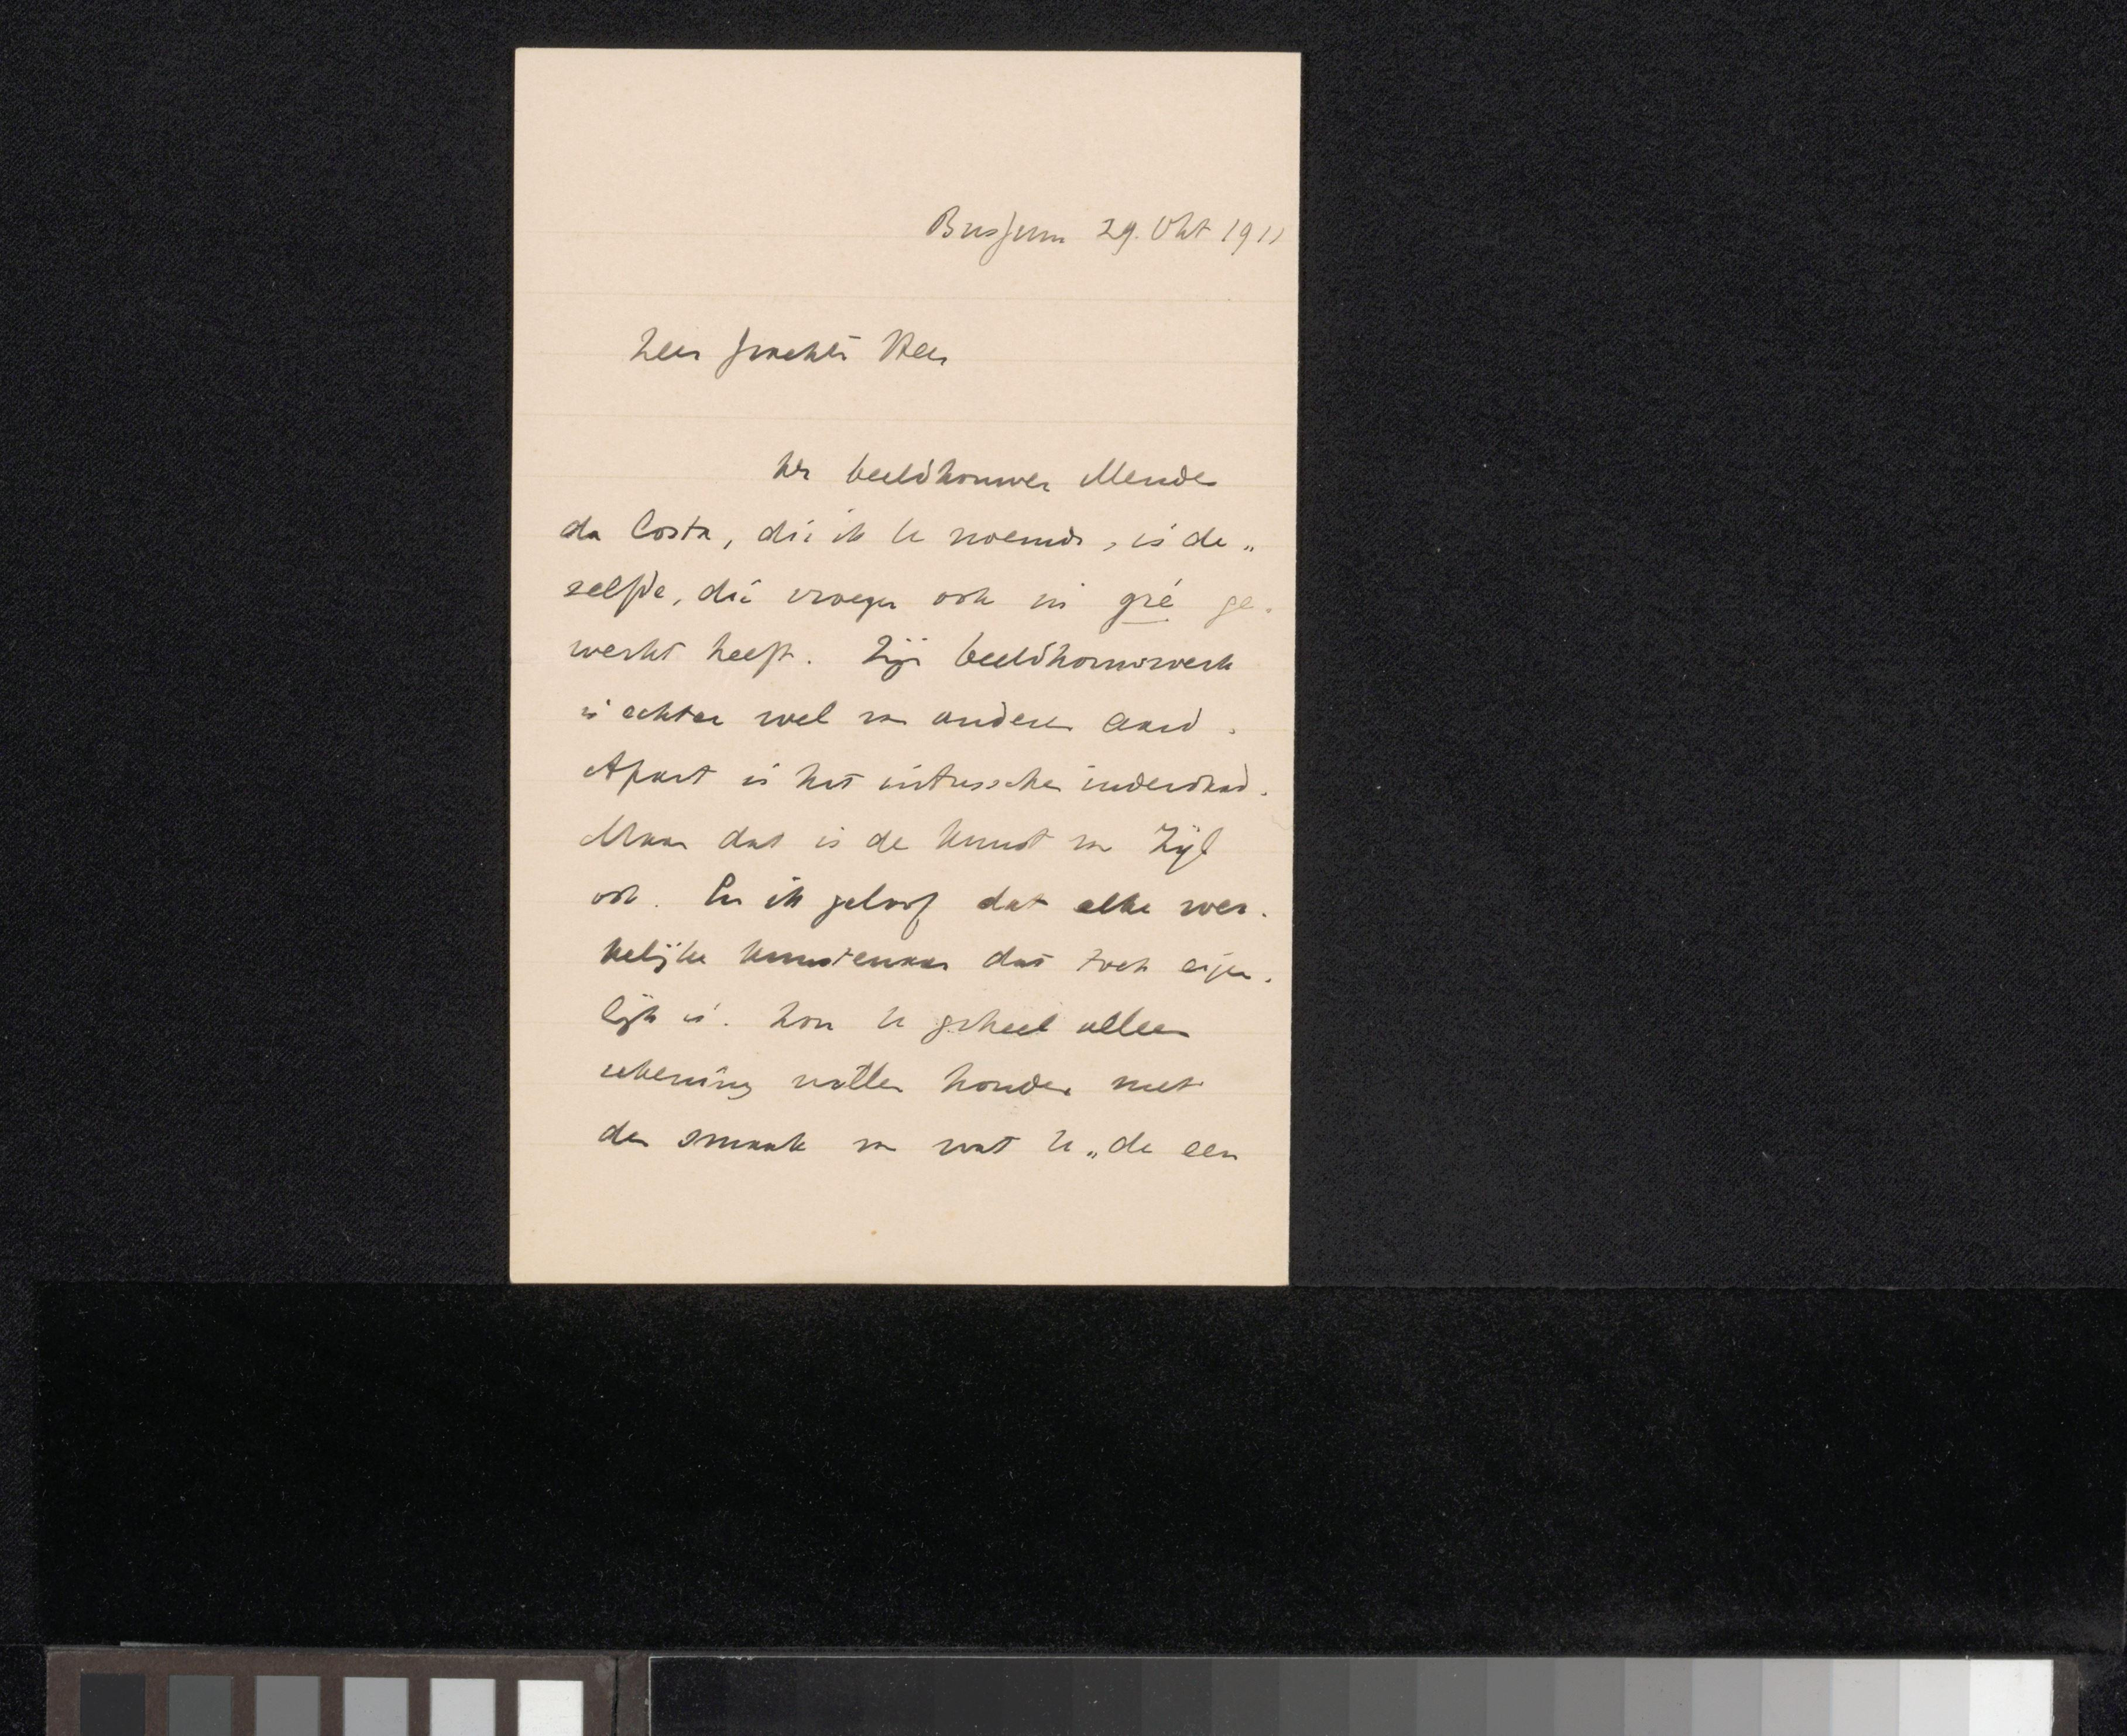 Bussum 29. Okt 1911
Zeer geachte Heer
De beeldhouwer Mendes
da Costa, die ik U noemde, is de„
zelfde, die vroeger ook in gré ge„
werkt heeft. Zijn beeldhouwwerk
is echter wel van anderen aard.
Apart is het intusschen inderdaad.
Maar dat is de kunst van Zijl
ook. En ik geloof dat elke wer„
kelijke kunstenaar dat toch eigen„
lijk is. Zou U geheel alleen
rekening willen houden met
den smaak van wat U „de een